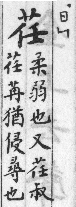 荏
柔弱也又荏菽
荏苒猶侵尋也